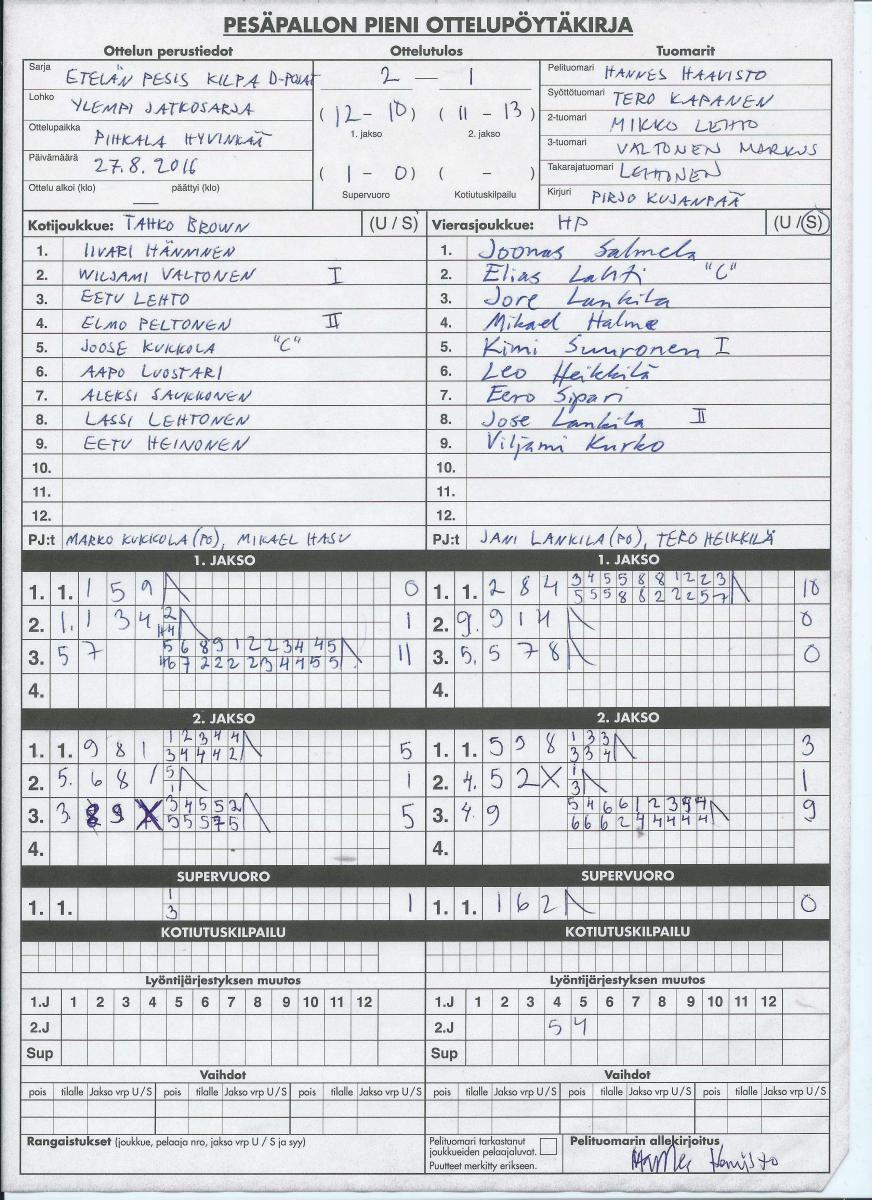 PESÄPALLON PIENI OTTELUPÖYTÄKIRJA
Ottelun perustiedot
Sarja ETELÄN PESIS KILPA D-POJAT
Lohko YLEMPI JATKOSARJA
Ottelupaikka PIHKALA HYVINKÄÄ
Päivämäärä 27.8.2016
Ottelu alkoi (klo) päättyi (klo)
Ottelutulos
2 — 1
(12 - 10) (11 - 13)
1. jakso 2. jakso
(1 - 0) ( - )
Supervuoro Kotiutuskilpailu
Tuomarit
Pelituomari HANNES HAAVISTO
Syöttötuomari TERO KAPANEN
2-tuomari MIKKO LEHTO
3-tuomari VALTONEN MARKUS
Takarajatuomari LEHTONEN
Kirjuri PIRJO KUJANPÄÄ
Kotijoukkue: TAHKO BROWN (U / S)
1. IIVARI HÄNNINEN
2. WILJAMI VALTONEN I
3. EETU LEHTO
4. ELMO PELTONEN II
5. JOOSE KUKKOLA "C"
6. AAPO LUOSTARI
7. ALEKSI SAUKKONEN
8. LASSI LEHTONEN
9. EETU HEINONEN
10.
11.
12.
PJ:t MARKO KUKKOLA (PO), MIKAEL HASU
Vierasjoukkue: HP (U / S)
1. Joonas Salmela
2. Elias Lahti "C"
3. Jore Lankila
4. Mikael Halme
5. Kimi Suuronen I
6. Leo Heikkilä
7. Eero Sipari
8. Jose Lankila II
9. Viljami Kurko
10.
11.
12.
PJ:t JANI LANKILA (PO), TERO HEIKKILÄ
1. JAKSO
1. 1. 1 5 9 0
2. 1. 1 3 4 2 1
3. 5 7 5 6 8 9 1 2 2 3 4 4 5 11
6 7 2 2 2 2 3 4 4 5 5
4.
1. JAKSO
1. 1. 2 8 4 3 4 5 5 8 8 1 2 2 3 10
5 5 5 8 8 2 2 2 5 7
2. 9. 9 1 4 0
3. 5. 5 7 8 0
4.
2. JAKSO
1. 1. 9 8 1 1 2 3 4 4 5
3 4 4 4 2
2. 5. 6 8 1 5 1
1
3. 3. 8 9 X 3 4 5 5 2 5
5 5 5 7 5
4.
2. JAKSO
1. 1. 5 9 8 1 3 3 3
3 3 4
2. 4. 5 2 X 1 1
3
3. 4. 9 5 4 6 6 1 2 3 9 4 9
6 6 6 2 4 4 4 4 4
4.
SUPERVUORO
1. 1. 1 1
3
SUPERVUORO
1. 1. 1 6 2 0
KOTIUTUSKILPAILU
KOTIUTUSKILPAILU
Lyöntijärjestyksen muutos
1.J 1 2 3 4 5 6 7 8 9 10 11 12
2.J
Sup
Lyöntijärjestyksen muutos
1.J 1 2 3 4 5 6 7 8 9 10 11 12
2.J 5 4
Sup
Vaihdot
pois tilalle Jakso vrp U / S pois tilalle Jakso vrp U / S pois tilalle Jakso vrp U / S
Vaihdot
pois tilalle Jakso vrp U / S pois tilalle Jakso vrp U / S pois tilalle Jakso vrp U / S
Rangaistukset (joukkue, pelaaja nro, jakso vrp U / S ja syy)
Pelituomari tarkastanut
joukkueiden pelaajaluvat.
Puutteet merkitty erikseen.
Pelituomarin allekirjoitus